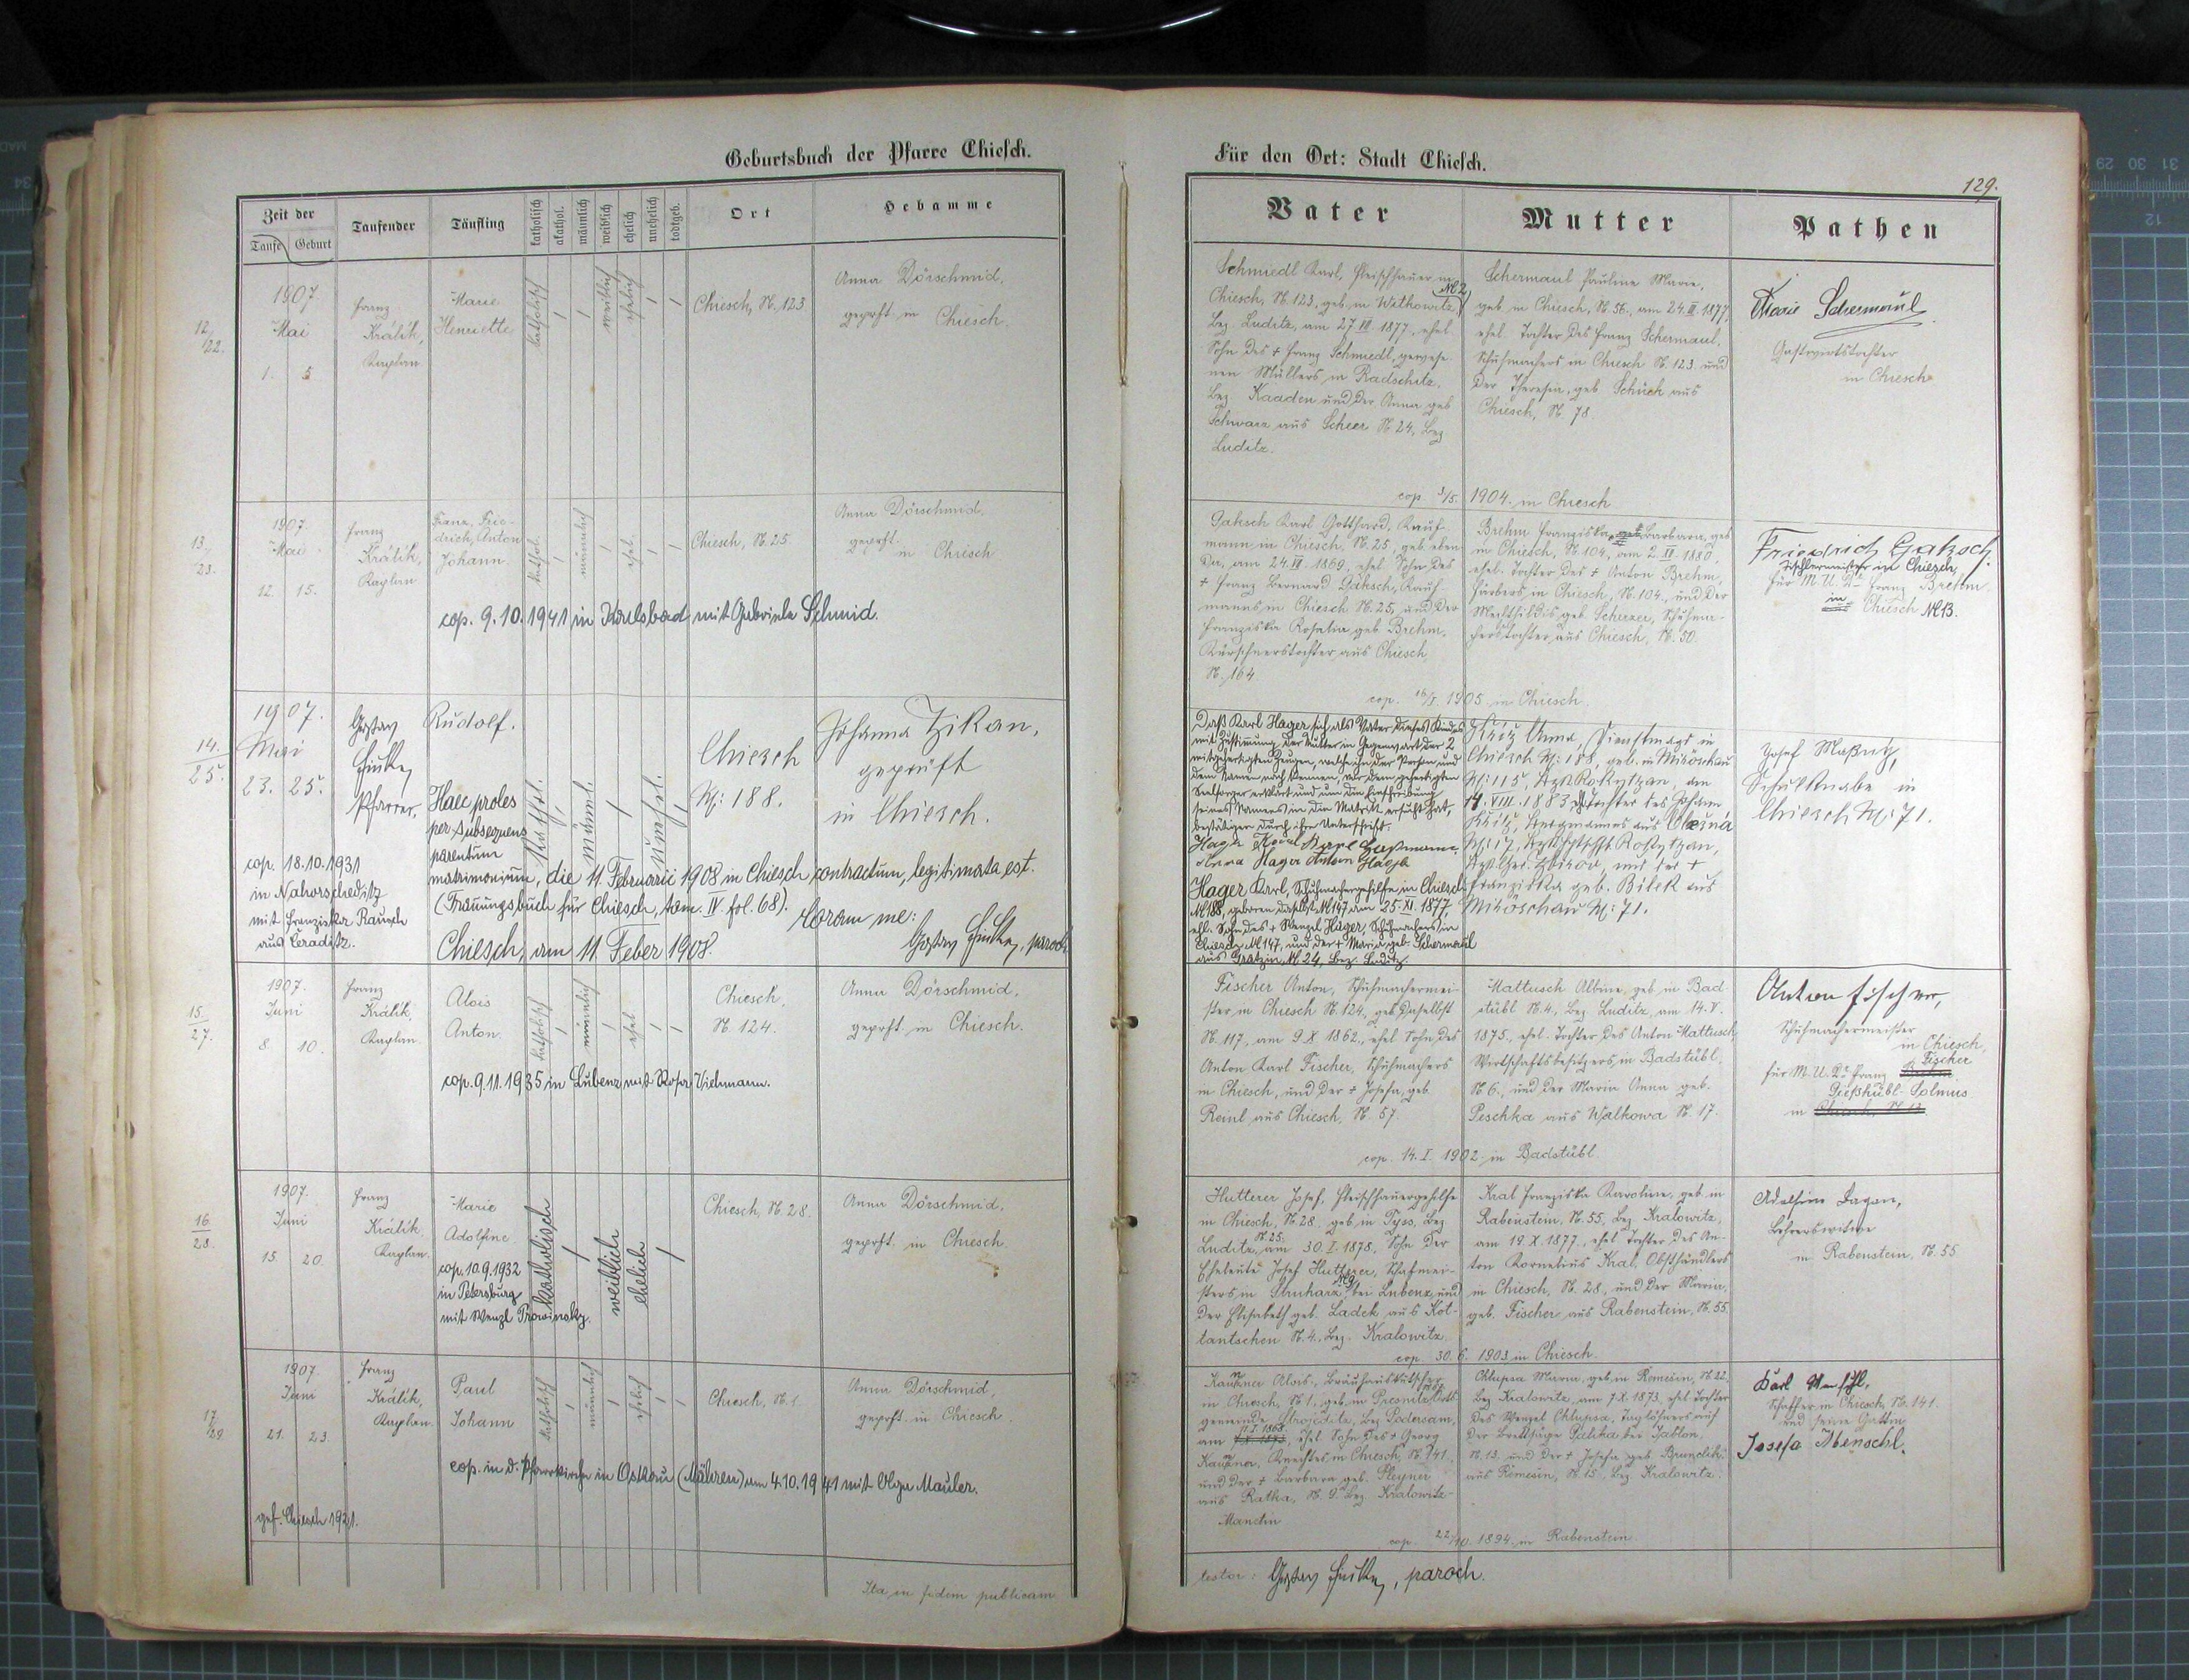 Geburtsbuch der Pfarre Chiesch.
Für den Ort: Stadt Chiesch.
129.
Zeit der
Taufe Geburt
Taufender
Täufling
katholisch
akathol.
männlich
weiblich
ehelich
unehelich
todtgeb.
Ort
Hebamme
Vater
Mutter
Pathen
12/22.
1907.
Mai
1. 5
Franz
Králik,
Kaplan
Marie
Henriette
katholisch
weiblich
ehelich
Chiesch, N. 123
Anna Dörschmid,
geprft in Chiesch.
Schmiedl Karl, Fleischhauer in
Chiesch, N. 123, geb. in Witkowitz, N 2
Bez. Luditz, am 27. 1877, ehel.
Sohn des + Franz Schmiedl, gewese-
nen Müllers in Radschitz,
Bez. Kaaden und der Anna geb
Schwarz aus Scheer N. 24, Bez
Luditz.
Schermaul Pauline Marie,
geb. in Chiesch, N. 56., am 24. III. 1877,
ehel. Tochter des Franz Schermaul,
Schuhmachers in Chiesch N. 123. und
der Theresia, geb. Schuch aus
Chiesch, N. 78.
Marie Schermaul
Gastwirtstochter
in Chiesch
cop. 3/5. 1904. in Chiesch
13./23.
1907.
Mai
12. 15.
Franz
Králik,
Kaplan
Franz, Frie-
drich, Anton
Johann
kathol.
männlich
ehel.
Chiesch, N. 25
Anna Dörschmid,
geprft.
in Chiesch
cop. 9.10.1941 in Karlsbad mit Gabriele Schmid.
Gaksch Karl Gotthard, Kauf-
mann in Chiesch, N. 25, geb. eben
da, am 24. VI. 1869, ehel. Sohn des
+ Franz Bernard Gaksch, Kauf-
manns in Chiesch N. 25, und der
Franziska Rosalia geb. Brehm,
Kürschnerstochter aus Chiesch
N. 164.
Brehm Franziska Barbara, geb
in Chiesch, N. 104, am 2. 1880,
ehel. Tochter des + Anton Brehm,
Färbers in Chiesch, N. 104., und der
Mechthildis geb. Scherzer, Schuhma-
cherstochter aus Chiesch, N. 50.
Friedrich Gaksch.
Tischlermeister in Chiesch
für M. U. Dr. Franz Brehm
in Chiesch N 13.
cop. 16/I. 1905 in Chiesch
14./25.
1907.
Mai
23. 25.
Gustav
Pfarrer.
Rudolf.
kathol.
männl.
unehel.
Chiesch
N: 188.
Johanna Zikan,
geprüft
in Chiesch.
Haec proles
per subsequens
parentum
matrimonium, die 11. Februarii 1908 in Chiesch contractum, legitimata est.
(Trauungsbuch für Chiesch, tom. IV fol. 68).
Coram me:
Chiesch, am 11. Feber 1908.
Gustav, paroch
cop. 18.10.1931
in Nahorscheditz
mit Franziska Rausch
aus Ceraditz.
Daß Karl Hager sich als Vater dieses Kindes
mit Zustimmung der Mutter in Gegenwart der 2
mitgefertigten Zeugen, welche ihn der Person und
dem Namen nach kennen, vor dem gefertigten
Seelsorger erklärt und um die Einschreibung
seines Namens in die Matrik ersucht hat,
bestätigen durch ihre Unterschrift.
Hager Karl
Anna Hager Anton
Hager Karl, Schuhmachergehilfe in Chiesch
N 188, geboren daselbst N 147 am 25. XI. 1877,
ehl. Sohn des + Wenzel Hager, Schuhmachers in
Chiesch N 147, und der + Maria geb. Schermaul
aus Gratzin, N 24, Bez. Luditz.
Křiž Anna, Dienstmagd in
Chiesch N: 188, geb. in Miröschau
N: 115, Rokytzan, am
14. VIII. 1883, Tochter des Johann
Křiž, Bergmannes aus
Rokytzan,
Zbirow, und der +
Franziska geb. Bilek aus
Miröschau N: 71.
Josef
Schulknabe in
Chiesch N: 71.
15./27.
1907.
Juni
8. 10.
Franz
Králik,
Kaplan.
Alois
Anton.
katholisch
männlich
ehel
Chiesch,
N. 124.
Anna Dörschmid,
geprft. in Chiesch.
cop. 9.11.1935 in Lubenz mit Rosa Viehmann.
Fischer Anton, Schuhmachermei-
ster in Chiesch N. 124, geb. daselbst
N. 117, am 9. X 1862., ehel Sohn des
Anton Karl Fischer, Schuhmachers
in Chiesch, und der + Josefa, geb.
Reinl aus Chiesch, N. 57.
Mattusch Albine, geb. in Bad-
stübl N. 4., Bez. Luditz, am 14. V.
1875., ehel. Tochter des Anton Mattusch,
Wirtschaftsbesitzers, in Badstübl,
N 6., und der Maria Anna geb.
Peschka aus Walkowa N. 17.
Anton Fischer,
Schuhmachermeister
in Chiesch,
für M. U. Dr. Franz Fischer
Gießhübl-Solmus
in
cop. 14. I. 1902 in Badstübl
16/28.
1907.
Juni
15. 20.
Franz
Králik,
Kaplan.
Marie
Adolfine
katholisch
weiblich
ehelich
Chiesch, N. 28.
Anna Dörschmid,
geprft. in Chiesch.
cop. 10.9.1932
in Petersburg
mit Wenzl Prowinsky.
Hutterer Josef, Fleischhauergehilfe
in Chiesch, N. 28. geb. in Tyss, Bez
Luditz, N. 25. am 30. I. 1878, Sohn der
Eheleute Josef Hutterer, Schafmei-
sters in Struharz, N 9, bei Lubenz, und
der Elisabeth geb. Ladek aus Kot-
tantschen N. 4., Bez. Kralowitz.
Kral Franziska Karoline, geb. in
Rabenstein, N. 55., Bez. Kralowitz,
am 19. X. 1877., ehel Tochter des An-
ton Kornelius Kral, Obsthändlers
in Chiesch, N. 28., und der Maria,
geb. Fischer aus Rabenstein, N. 55.
Adolfine Dagan,
Lehrerswitwe
in Rabenstein, N. 55
cop. 30. 6. 1903 in Chiesch.
17/29
1907.
Juni
21. 23.
Franz
Králik,
Kaplan.
Paul
Johann
katholisch
männlich
ehelich
Chiesch, N. 1.
Anna Dörschmid,
geprft. in Chiesch.
cop. in d. Pfarrkirche in Ostrau (Mähren) am 4.10.1941 mit Olga Mauler.
gef. Chiesch 1921.
Alois, Bräuhauskutscher
in Chiesch, N. 1, geb. in
gemeinde Strojeditz, Bez Podersam,
am 11. I. 1868, ehel. Sohn des + Georg
Knechtes in Chiesch, N. 141,
und der + Barbara geb. Pleyner
aus Ratka, N. 9. Bez. Kralowitz-
Manetin
Chlupsa Maria geb. in Römesin, N. 22.
Bez Kralowitz, am 7. X. 1873, ehel Tochter
des Wenzel Chlupsa, Taglöhners auf
der Brettsäge Palika bei Jablon,
N. 13. und der + Josefa geb. Brunclik
aus Römesin, N. 15., Bez. Kralowitz.
Karl
Schaffer in Chiesch, N. 141.
und seine Gattin
Josefa Abenschl.
cop. 22/10. 1894. in Rabenstein
Ita in fidem publicam
testor: Gustav, paroch.